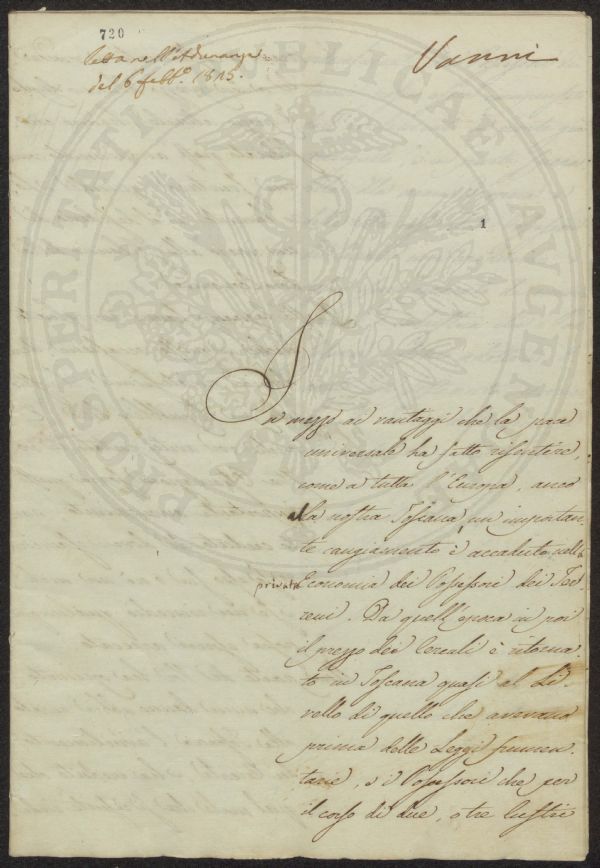 720
Letta nell'Adunanza
del 6 febb.º 1815.
Vanni
PROSPERITATI PUBLICAE AUGENDAE
1
In mezzo ai vantaggi che la pace
universale ha fatto risentire,
come a tutta l'Europa, anco
alla nostra Toscana, un importan-
te cangiamento è accaduto nella
privata Economia dei Possessori dei Ter-
reni. Da quell'epoca in poi
il prezzo dei Cereali è ritorna-
to in Toscana quasi al Li-
vello di quello che avevano
prima delle Leggi frumen-
tarie, e i Possessori che per
il corso di due, o tre lustri